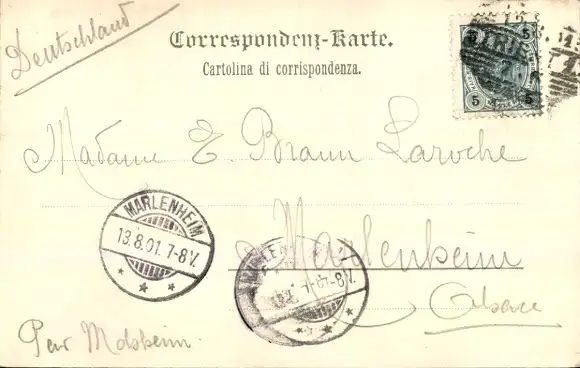 Deutschland
Correspondenz-Karte.
Cartolina di corrispondenza.
5 5
5 5
Madame E Braun Laroche
Marlenheim
Alsace
Per Molsheim.
MARLENHEIM
13.8.01. 7-8V.
7-8V.